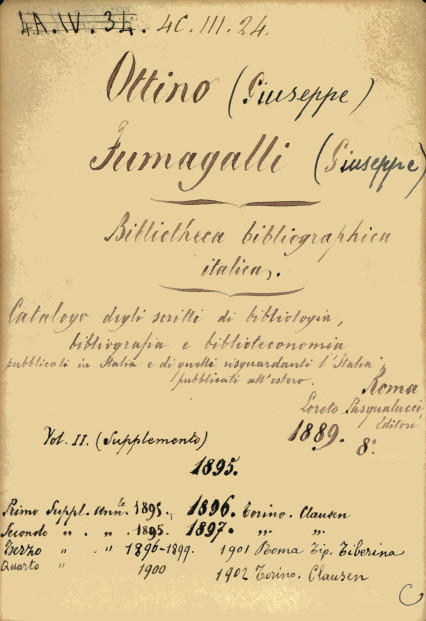 4A.IV.34. 4C.III.24.
Ottino (Giuseppe)
Fumagalli (Giuseppe)
Bibliotheca bibliographica
italica.
Catalogo degli scritti di bibliologia,
bibliografia e biblioteconomia
pubblicati in Italia e di quelli risguardanti l'Italia
pubblicati all'estero.
Roma
Loreto Pasqualucci,
Editore
1889. 8º
Vol. II. (Supplemento)
1895.
Primo Suppl. Annle 1895. 1896. Torino. Clausen
Secondo " " " 1895. 1897. " "
Terzo " " " 1896-1899. 1901 Roma Tip. Tiberina
Quarto " 1900 1902 Torino. Clausen